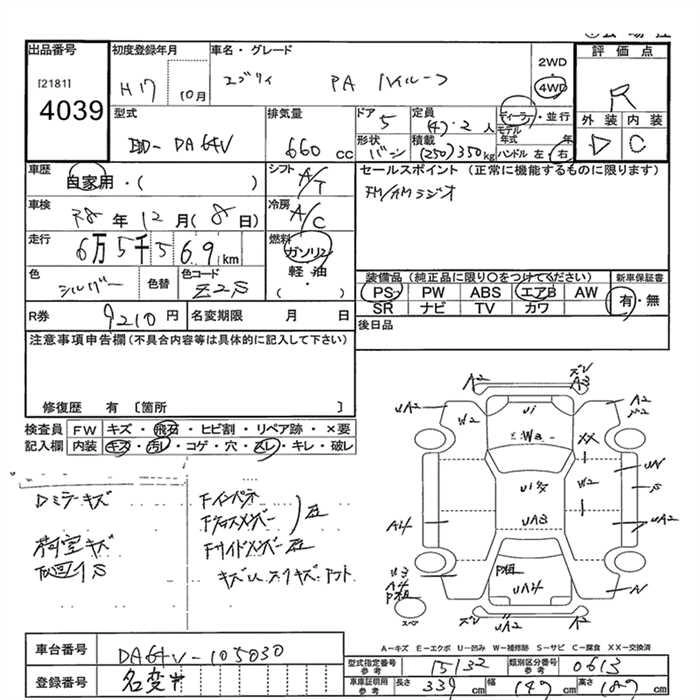 出品番号
[2181]
4039
初度登録年月
H17 10月
車名・グレード
エブリィ PA ハイルーフ
2WD
4WD
評価点
R
外装 内装
D C
型式
EBD-DA64V
排気量
660 cc
ドア 5
形状 バン
定員 (4)・2 人
積載 (250)350kg
ディーラー・並行
モデル年式 年
ハンドル 左・右
車歴
自家用・( )
シフト A/T
セールスポイント(正常に機能するものに限ります)
FM/AMラジオ
車検 28年12月(8日)
冷房 A/C
走行 6万5千569km
燃料 ガソリン
軽・油
( )
色 シルバー 色替 色コード Z2S
装備品(純正品に限り○をつけてください) 新車保証書
PS PW ABS エアB AW 有・無
SR ナビ TV カワ
R券 9210円 名変期限 月 日
後日品
注意事項申告欄(不具合内容等は具体的に記入して下さい)
修復歴 有〔箇所 〕
検査員 FW キズ・飛石・ヒビ割・リペア跡・×要
記入欄 内装 キズ・汚レ・コゲ・穴・スレ・キレ・破レ
Dミラーキズ
荷室キズ
Fインパネ
Fクロスメンバー
Fサイドメンバー
A2 A3
UA2 W2 Ui A2
Wa XX
UA3 W2 UA2
A4
UA4
A
スペア
A−キズ E−エクボ U−凹み W−補修跡 S−サビ C−腐食 XX−交換済
車台番号 DA64V-105030
登録番号 名変
型式指定番号 15132 類別区分番号 0613
車庫証明用参考 長さ 339cm 幅 147cm 高さ 187cm